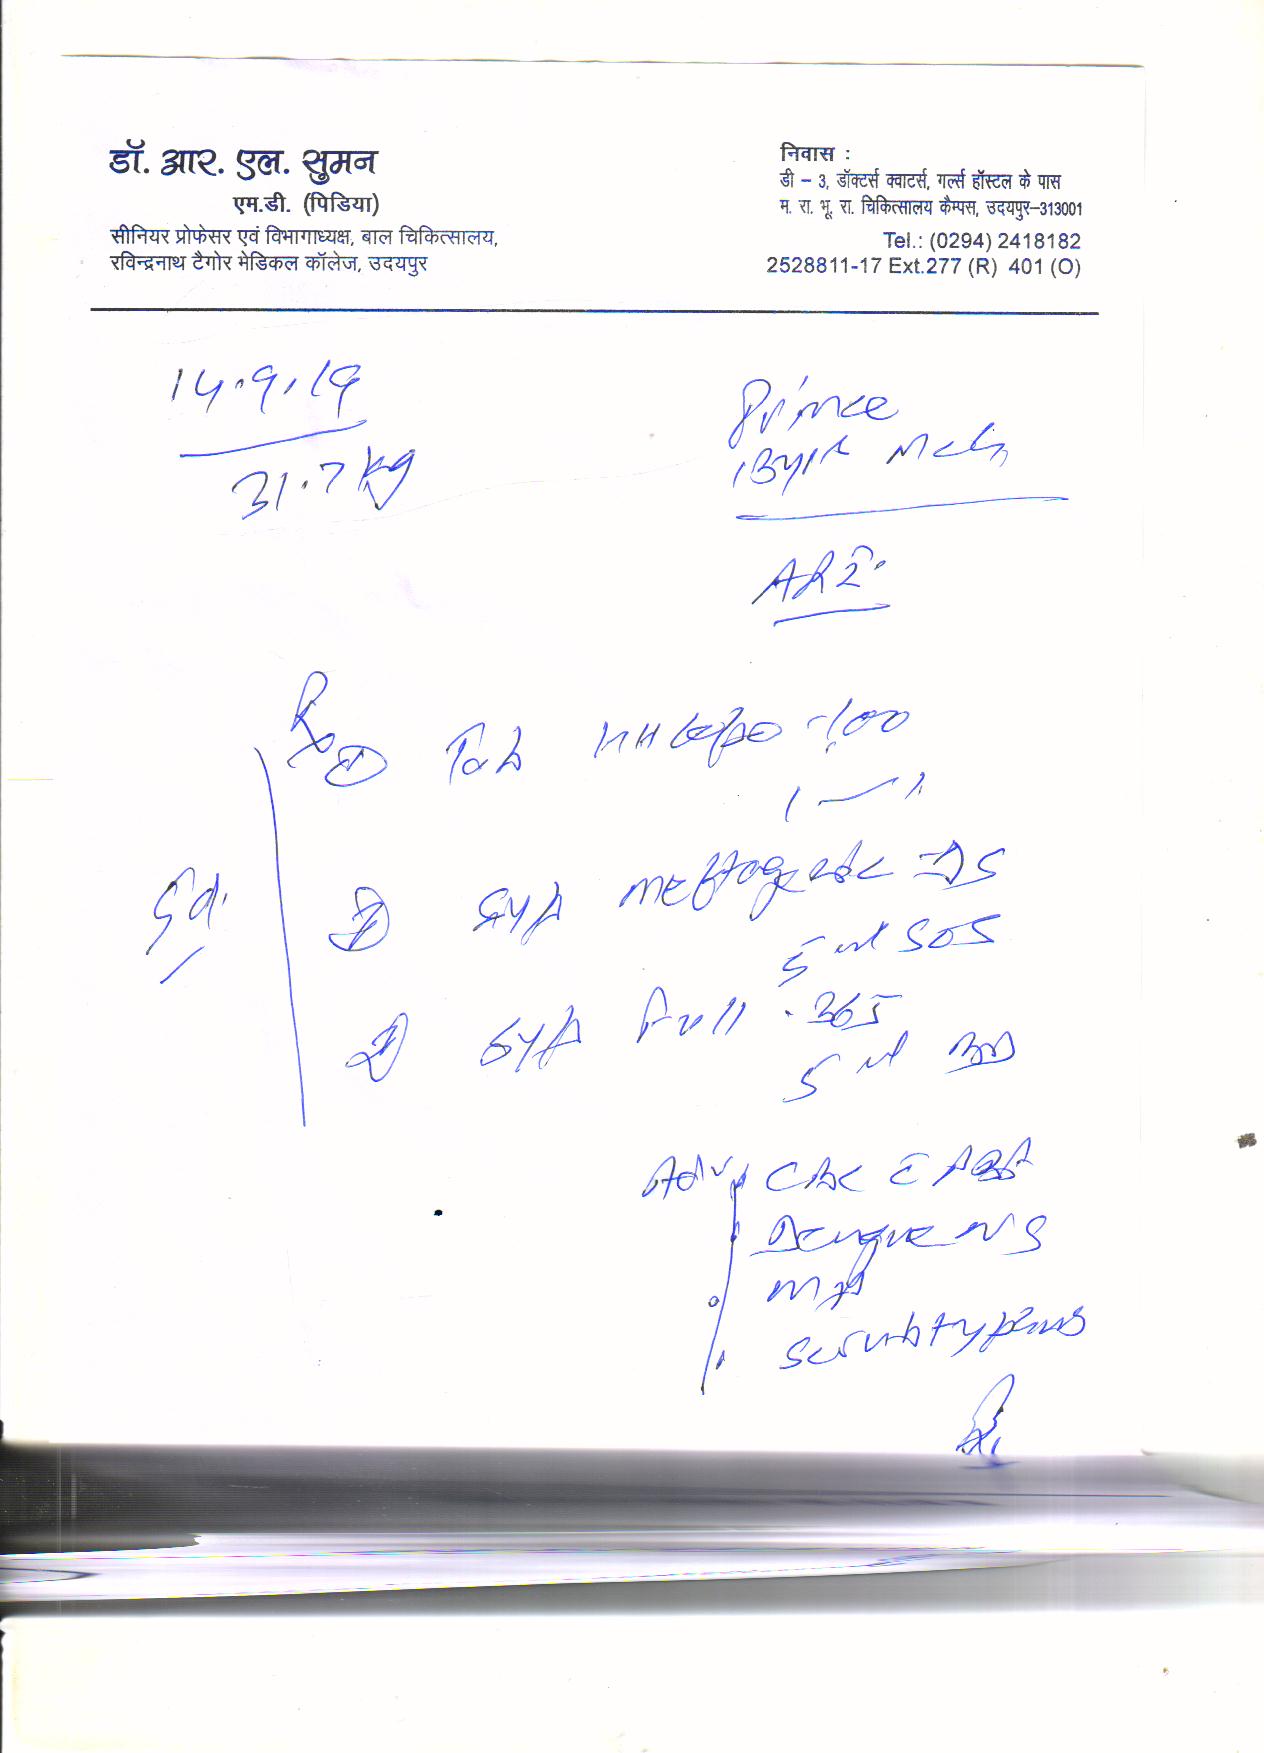 डॉ. आर. एल. सुमन
एम.डी. (पिडिया)
सीनियर प्रोफेसर एवं विभागाध्यक्ष, बाल चिकित्सालय,
रविन्द्रनाथ टैगोर मेडिकल कॉलेज, उदयपुर
निवास :
डी – 3, डॉक्टर्स क्वाटर्स, गर्ल्स हॉस्टल के पास
म. रा. भू. रा. चिकित्सालय कैम्पस, उदयपुर–313001
Tel.: (0294) 2418182
2528811-17 Ext.277 (R) 401 (O)
14.9.19
31.7 kg
Prince
Rx
① Tab -100
1 — 1
5d.
Syp meftagesic DS
5 ml SOS
Syp 365
5 ml BD
Adv CBC
Dengue NS
MP
Scrub typhus